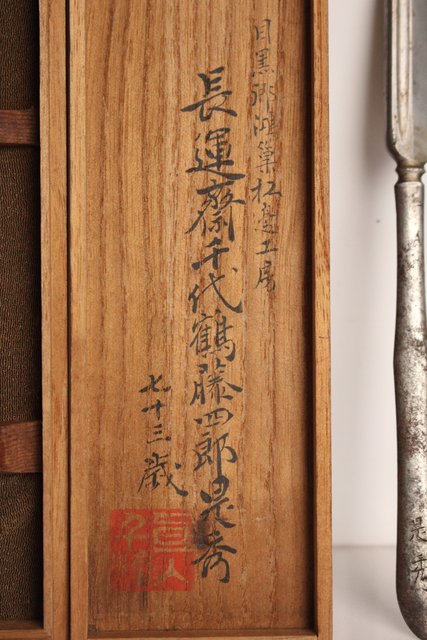 目黒郷鴻巣松邑工房
長運齋千代鶴藤四郎是秀
七十三歳
是秀